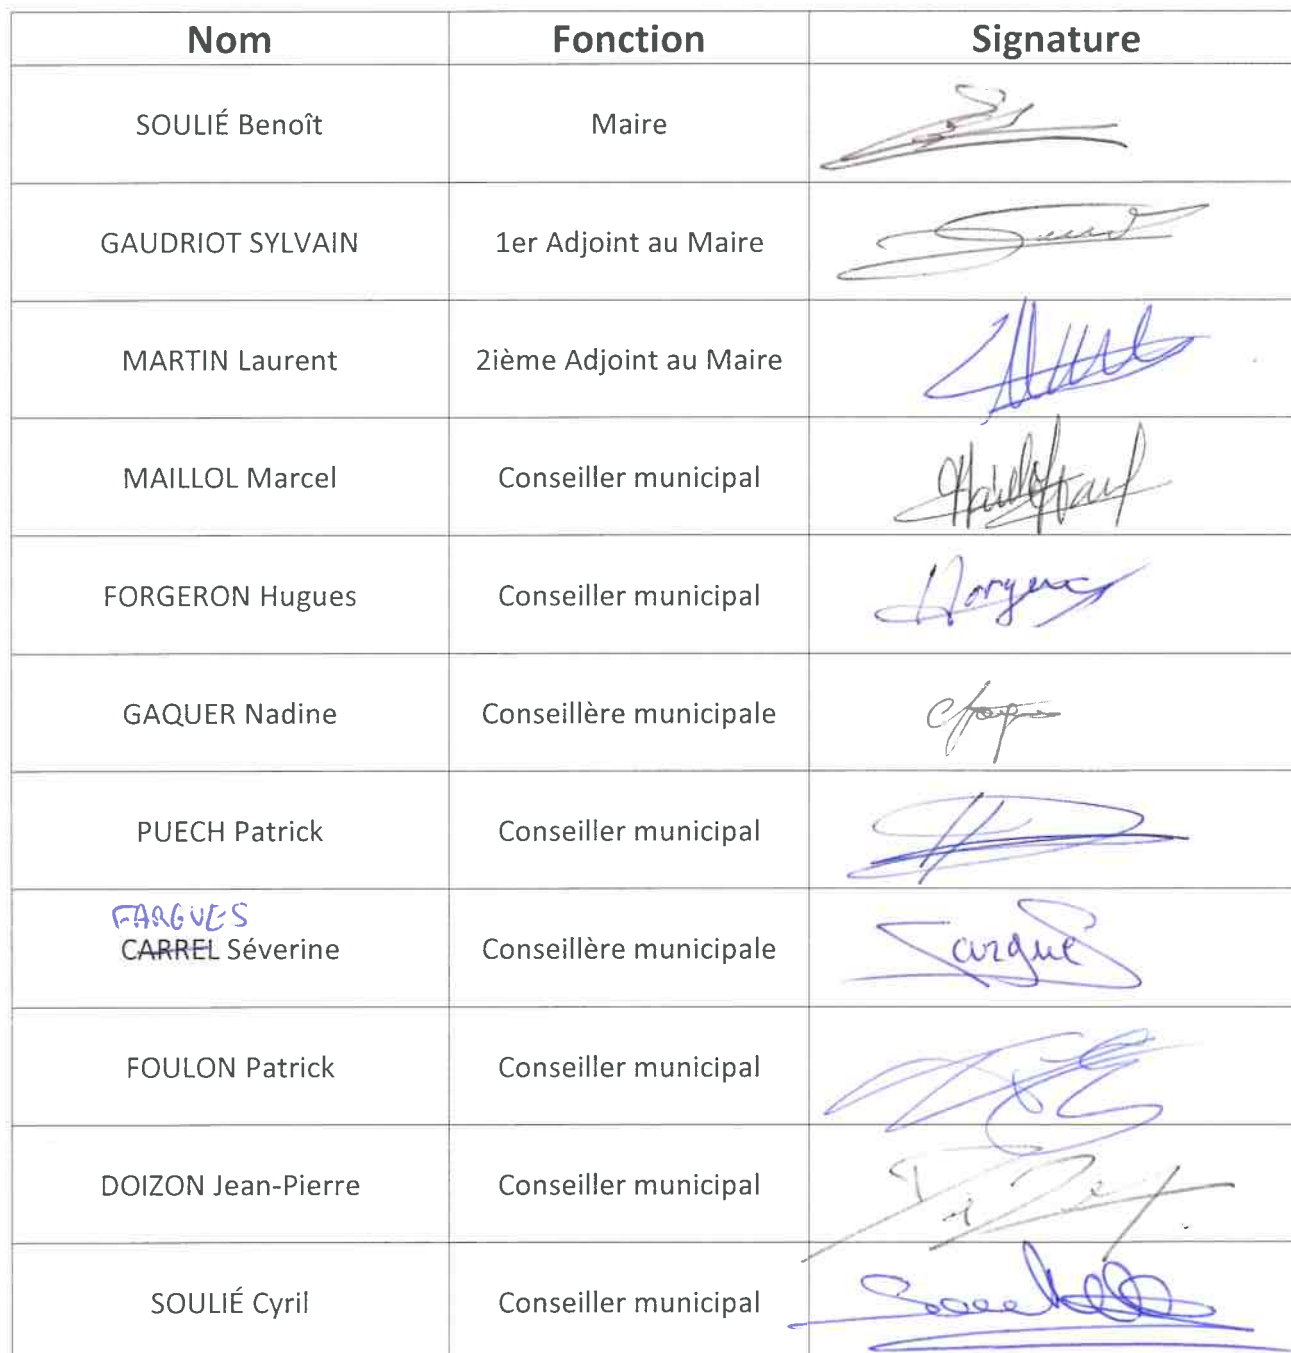 Nom Fonction Signature
SOULIÉ Benoît Maire
GAUDRIOT SYLVAIN 1er Adjoint au Maire
MARTIN Laurent 2ième Adjoint au Maire
MAILLOL Marcel Conseiller municipal
FORGERON Hugues Conseiller municipal
GAQUER Nadine Conseillère municipale
PUECH Patrick Conseiller municipal
FARGUES
CARREL Séverine Conseillère municipale Fargues
FOULON Patrick Conseiller municipal
DOIZON Jean-Pierre Conseiller municipal
SOULIÉ Cyril Conseiller municipal